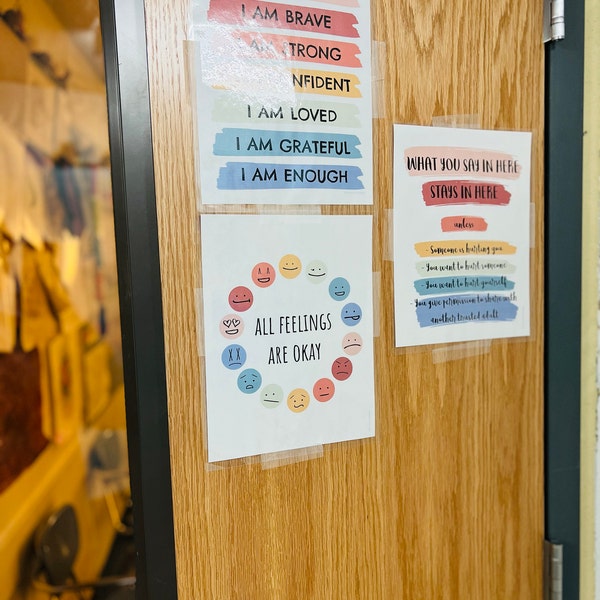 I AM BRAVE
I AM STRONG
CONFIDENT
I AM LOVED
I AM GRATEFUL
I AM ENOUGH
WHAT YOU SAY IN HERE
STAYS IN HERE
unless
- Someone is hurting you
- You want to hurt someone
- You want to hurt yourself
- You give permission to share with
another trusted adult
ALL FEELINGS
ARE OKAY